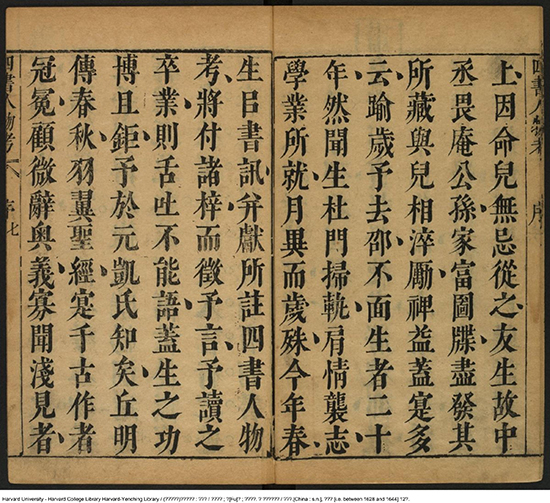 上因命兒無忌從之友生故中
丞畏庵公孫家富圖牒盡發其
所藏與兒相淬勵裨益蓋寔多
云踰歲予去邵不面生者二十
年然聞生杜門掃軌肩情襲志
學業所就月異而歲殊今年春
四書人物考
序
四書人物考
序
七
生㠯書訊并獻所註四書人物
考將付諸梓而徵予言予讀之
卒業則舌吐不能語蓋生之功
博且鉅予於元凱氏知矣丘明
傳春秋羽翼聖經寔千古作者
冠冕顧微辭奥義寡聞淺見者
Harvard University - Harvard College Library Harvard-Yenching Library / (?????)????? : ??? / ???? ; ?[Fu]? ; ????. ? ?????? / ???.[China : s.n.], ??? [i.e. between 1628 and 1644] 12?.